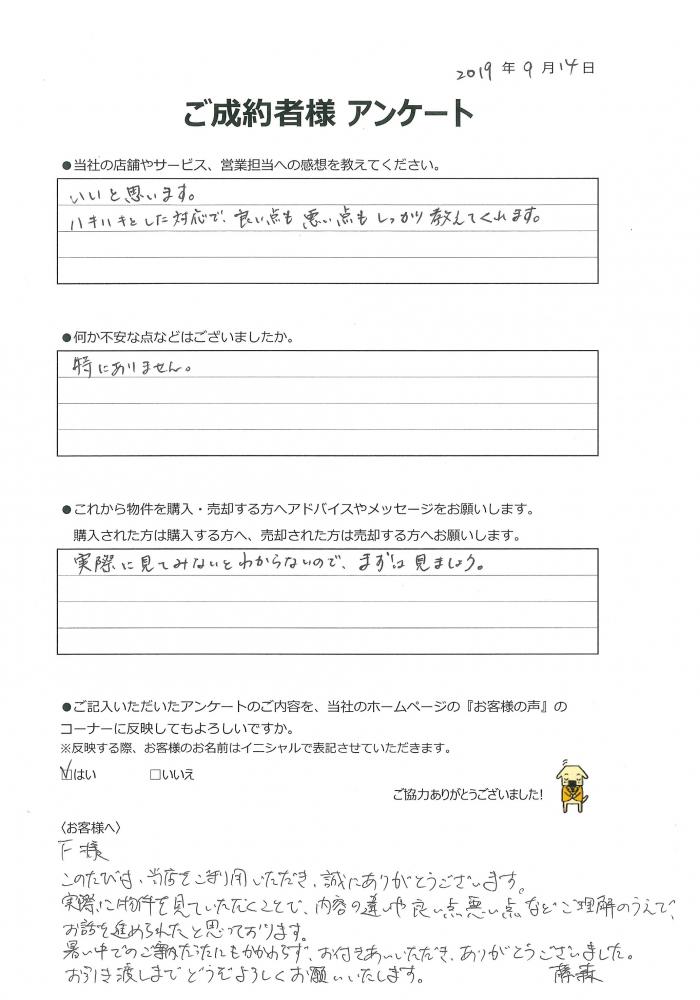 2019年9月14日
ご成約者様 アンケート
●当社の店舗やサービス、営業担当への感想を教えてください。
いいと思います。
ハキハキとした対応で、良い点も悪い点もしっかり教えてくれます。
●何か不安な点などはございましたか。
特にありません。
●これから物件を購入・売却する方へアドバイスやメッセージをお願いします。
購入された方は購入する方へ、売却された方は売却する方へお願いします。
実際に見てみないとわからないので、まずは見ましょう。
●ご記入いただいたアンケートのご内容を、当社のホームページの『お客様の声』の
コーナーに反映してもよろしいですか。
※反映する際、お客様のお名前はイニシャルで表記させていただきます。
☑はい □いいえ
ご協力ありがとうございました!
〈お客様へ〉
F様
このたびは、当店をご利用いただき、誠にありがとうございます。
実際に物件を見ていただくことで、内容の違いや良い点悪い点などご理解のうえで、
お話を進められたと思っております。
暑い中でのご案内にもかかわらず、お付きあいいただき、ありがとうございました。
お引き渡しまでどうぞよろしくお願いいたします。 藤森